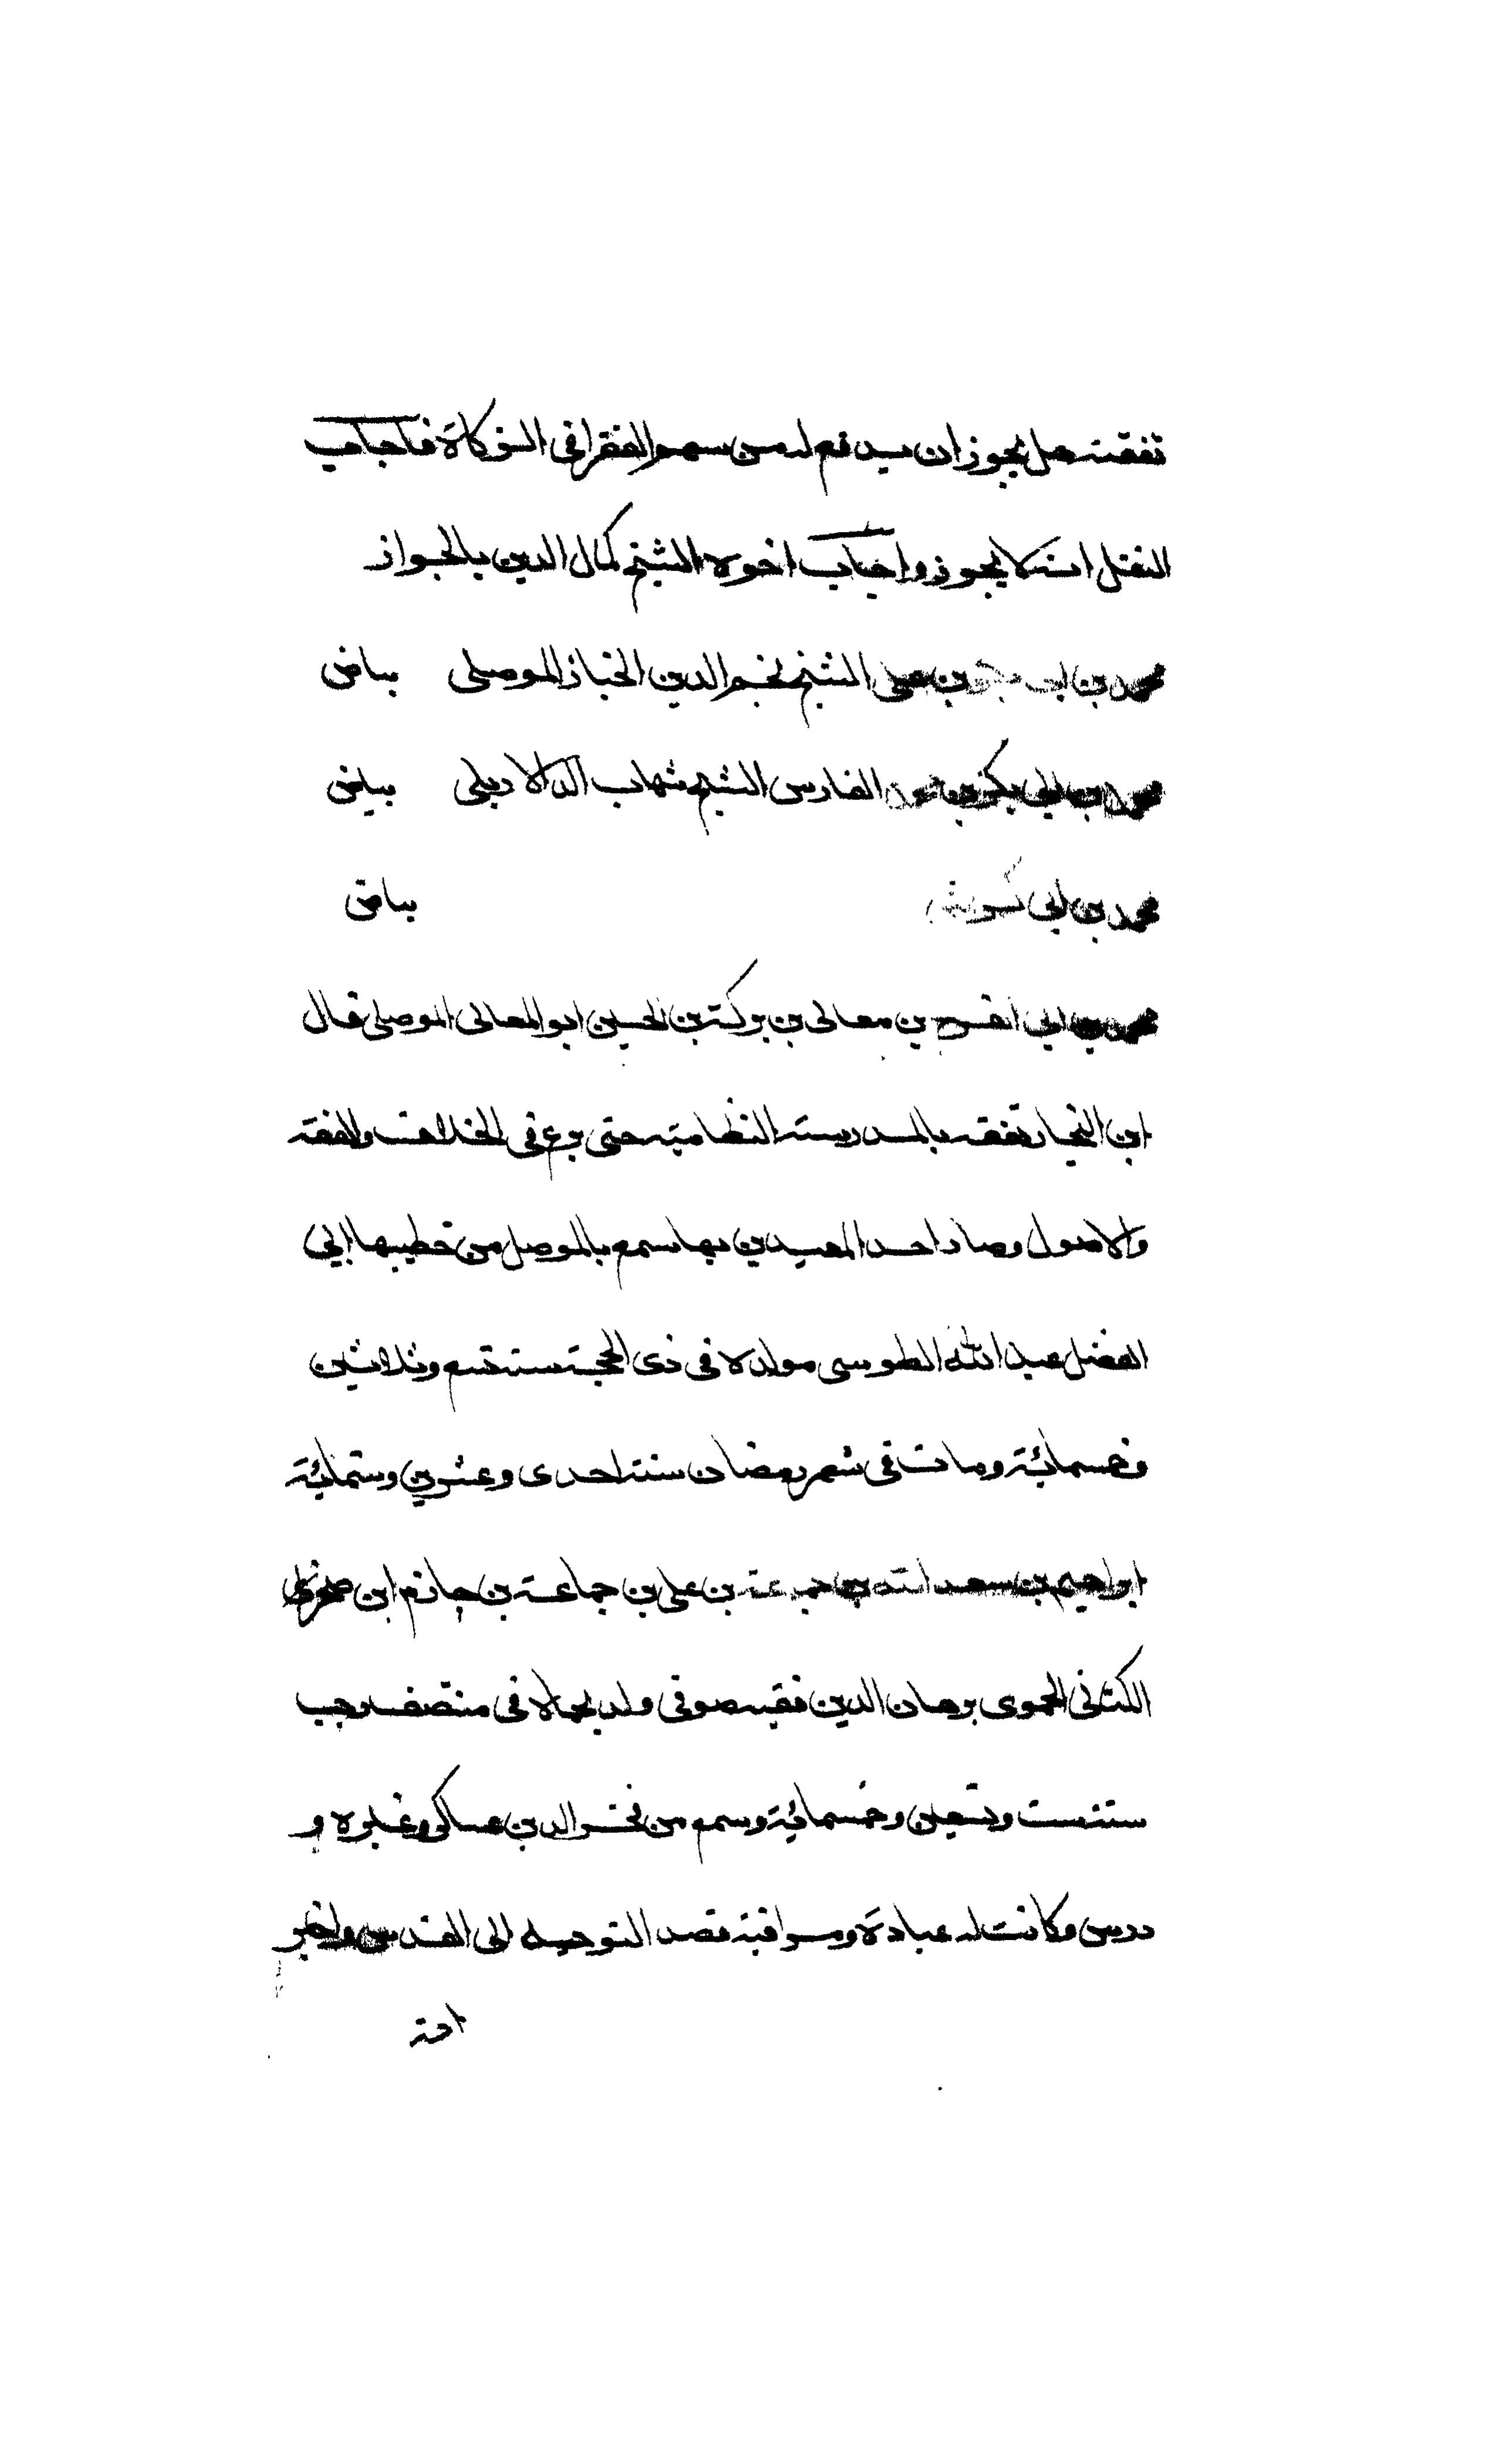 نفقته هل يجوز ان يدفع له من سهم الفقرا فى الزكاة فاجاب
النقل انه لا يجوز واجاب اخوه الشيخ كمال الدين بالجواز
محمد بن ابى بن على الشيخ نجم الدين الخباز الموصلى بياض
محمد بن ابي بكر بن محمد الفارس الشيخ شهاب الدالاربلى بياض
محمد بن ابي بياض
محمد بن ابي الفرج بن معالى بن بركة بن الحسين ابو المعالى الموصلى قال
ابن النجار تفقه بالمدرسة النظامية حتى برع فى الخلاف والفقه
والاصول وصار احد المعيدين بها سمع بالموصل من خطيبها ابي
الفضل عبد الله الطوسى مولده فى ذى الحجة سنة تسع وثلاثين
وخمسمائة ومات فى شهر رمضان سنة احدى وعشرين وستمائة
ابراهيم بن سعد الله بن جماعة بن على بن جماعة بن حازم ابن صخر
الكنانى الحموى برهان الدين فقيه صوفى ولد بحماة فى منتصف رجب
سنة ست وتسعين وخمسمائة وسمع من فخر الدين عساكر وغيره و
درس وكانت له عبادة ومراقبة قصد التوجه الى القدس واخبر
انه